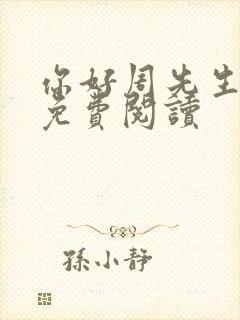 你好周先生
免費閱讀
孫小靜